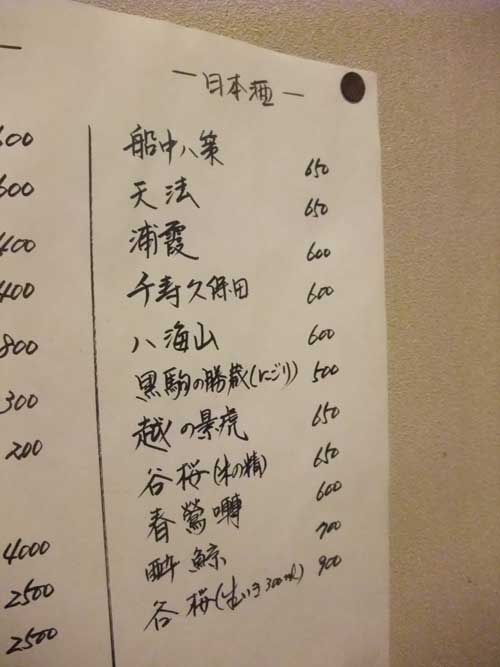 600
600
400
400
800
300
200
4000
2500
2500
― 日本酒 ―
船中八策 650
天法 650
浦霞 600
千寿久保田 600
八海山 600
黒駒の勝蔵(にごり) 500
越の景虎 650
谷桜(米の精) 650
春鶯囀 600
酔鯨 700
谷桜(生いき300ml) 900